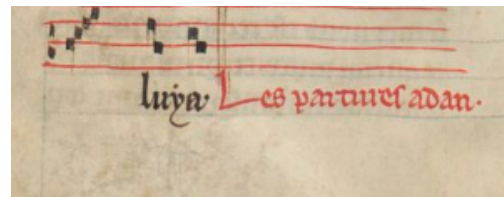 luya. Les partures adan.